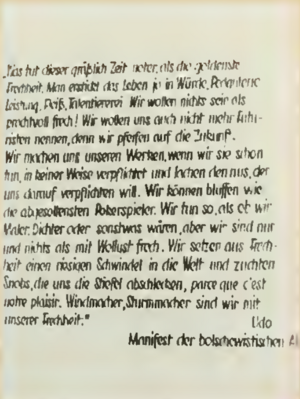 „Was tut dieser gräßlich Zeit noter, als die goldenste
Frechheit. Man erstickt das Leben ja in Würde, Pedanterie
Leistung, Fleiß, Talentiererei. Wir wollen nichts sein als
prachtvoll frech! Wir wollen uns auch nicht mehr Futu-
risten nennen, denn wir pfeifen auf die Zukunft.
Wir machen uns unseren Werken, wenn wir sie schon
tun, in keiner Weise verpflichtet und lachen den aus, der
uns darauf verpflichten will. Wir können bluffen wie
die abgesottensten Pokerspieler. Wir tun so, als ob wir
Maler, Dichter oder sonstwas wären, aber wir sind nur
und nichts als mit Wollust frech. Wir setzen aus Frech-
heit einen riesigen Schwindel in die Welt und züchten
Snobs, die uns die Stiefel abschlecken, parce que c'est
notre plaisir. Windmacher, Sturmmacher sind wir mit
unserer Frechheit."
Udo
Manifest der bolschewistischen